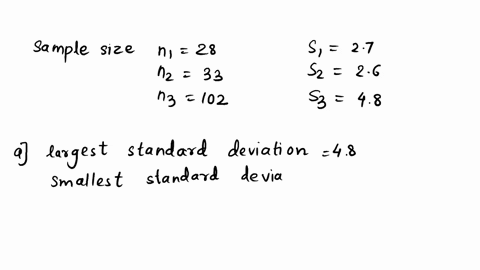 Sample size n₁ = 28 S₁ = 2.7
n₂ = 33 S₂ = 2.6
n₃ = 102 S₃ = 4.8
a] largest standard deviation = 4.8
smallest standard devia